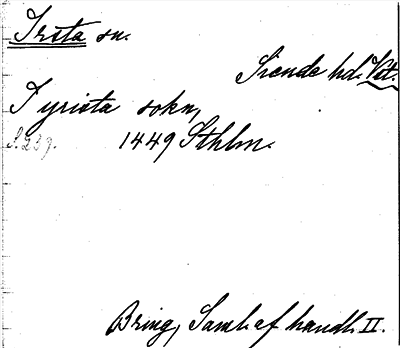 Irsta sn.
Siende hd. Vst.
I yrista sokn,
S. 239. 1449 Sthlm.
Bring, Saml. af handl. II.